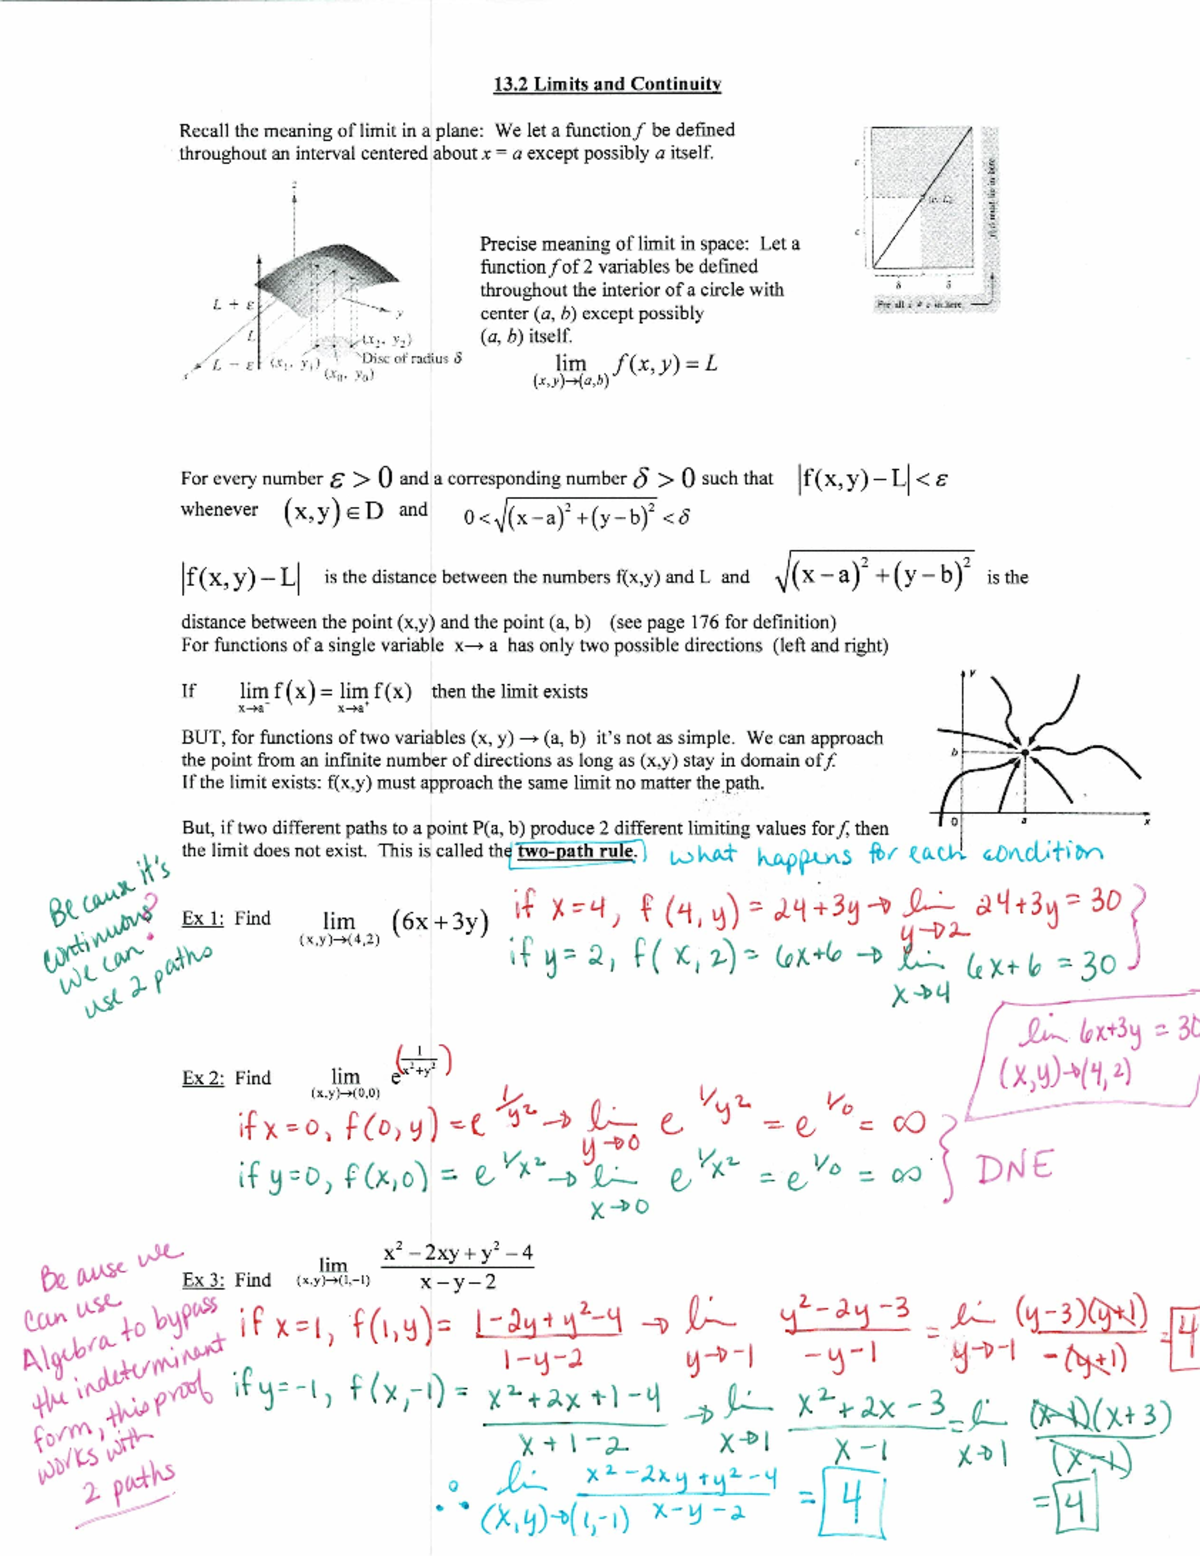 13.2 Limits and Continuity
Recall the meaning of limit in a plane: We let a function f be defined
throughout an interval centered about x = a except possibly a itself.
z
L + ε
L
L − ε
y
x
(x₁, y₁)
(x₂, y₂)
(x₀, y₀)
Disc of radius δ
Precise meaning of limit in space: Let a
function f of 2 variables be defined
throughout the interior of a circle with
center (a, b) except possibly
(a, b) itself.
lim f(x, y) = L
(x,y)→(a,b)
δ δ
For every number ε > 0 and a corresponding number δ > 0 such that |f(x,y) − L| < ε
whenever (x,y) ∈ D and 0 < √((x−a)² + (y−b)²) < δ
|f(x,y) − L| is the distance between the numbers f(x,y) and L and √((x−a)² + (y−b)²) is the
distance between the point (x,y) and the point (a, b) (see page 176 for definition)
For functions of a single variable x→ a has only two possible directions (left and right)
If lim f(x) = lim f(x) then the limit exists
x→a⁻ x→a⁺
BUT, for functions of two variables (x, y) → (a, b) it's not as simple. We can approach
the point from an infinite number of directions as long as (x,y) stay in domain of f.
If the limit exists: f(x,y) must approach the same limit no matter the path.
y
b
0
a
x
But, if two different paths to a point P(a, b) produce 2 different limiting values for f, then
the limit does not exist. This is called the two-path rule.) what happens for each condition
Because it's
continuous?
we can
use 2 paths
Ex 1: Find lim (6x + 3y)
(x,y)→(4,2)
if x=4, f(4,y) = 24+3y → lim 24+3y = 30
y→2
if y=2, f(x,2) = 6x+6 → lim 6x+6 = 30
x→4
lim 6x+3y = 30
(x,y)→(4,2)
Ex 2: Find lim e^(1/(x²+y²))
(x,y)→(0,0)
if x=0, f(0,y) = e^1/y² → lim e^1/y² = e^1/0 = ∞
y→0
if y=0, f(x,0) = e^1/x² → lim e^1/x² = e^1/0 = ∞
x→0
DNE
Ex 3: Find lim (x² − 2xy + y² − 4)/(x − y − 2)
(x,y)→(1,−1)
Be ause we
can use
Algebra to bypass
the indeterminant
form, this proof
works with
2 paths
if x=1, f(1,y) = (1−2y+y²−4)/(1−y−2) → lim (y²−2y−3)/(−y−1) = lim (y−3)(y+1)/−(y+1) = 4
y→−1 y→−1
if y=−1, f(x,−1) = (x²+2x+1−4)/(x+1−2) → lim (x²+2x−3)/(x−1) = lim (x−1)(x+3)/(x−1)
x→1 x→1
= 4
∴ lim (x²−2xy+y²−4)/(x−y−2) = 4
(x,y)→(1,−1)